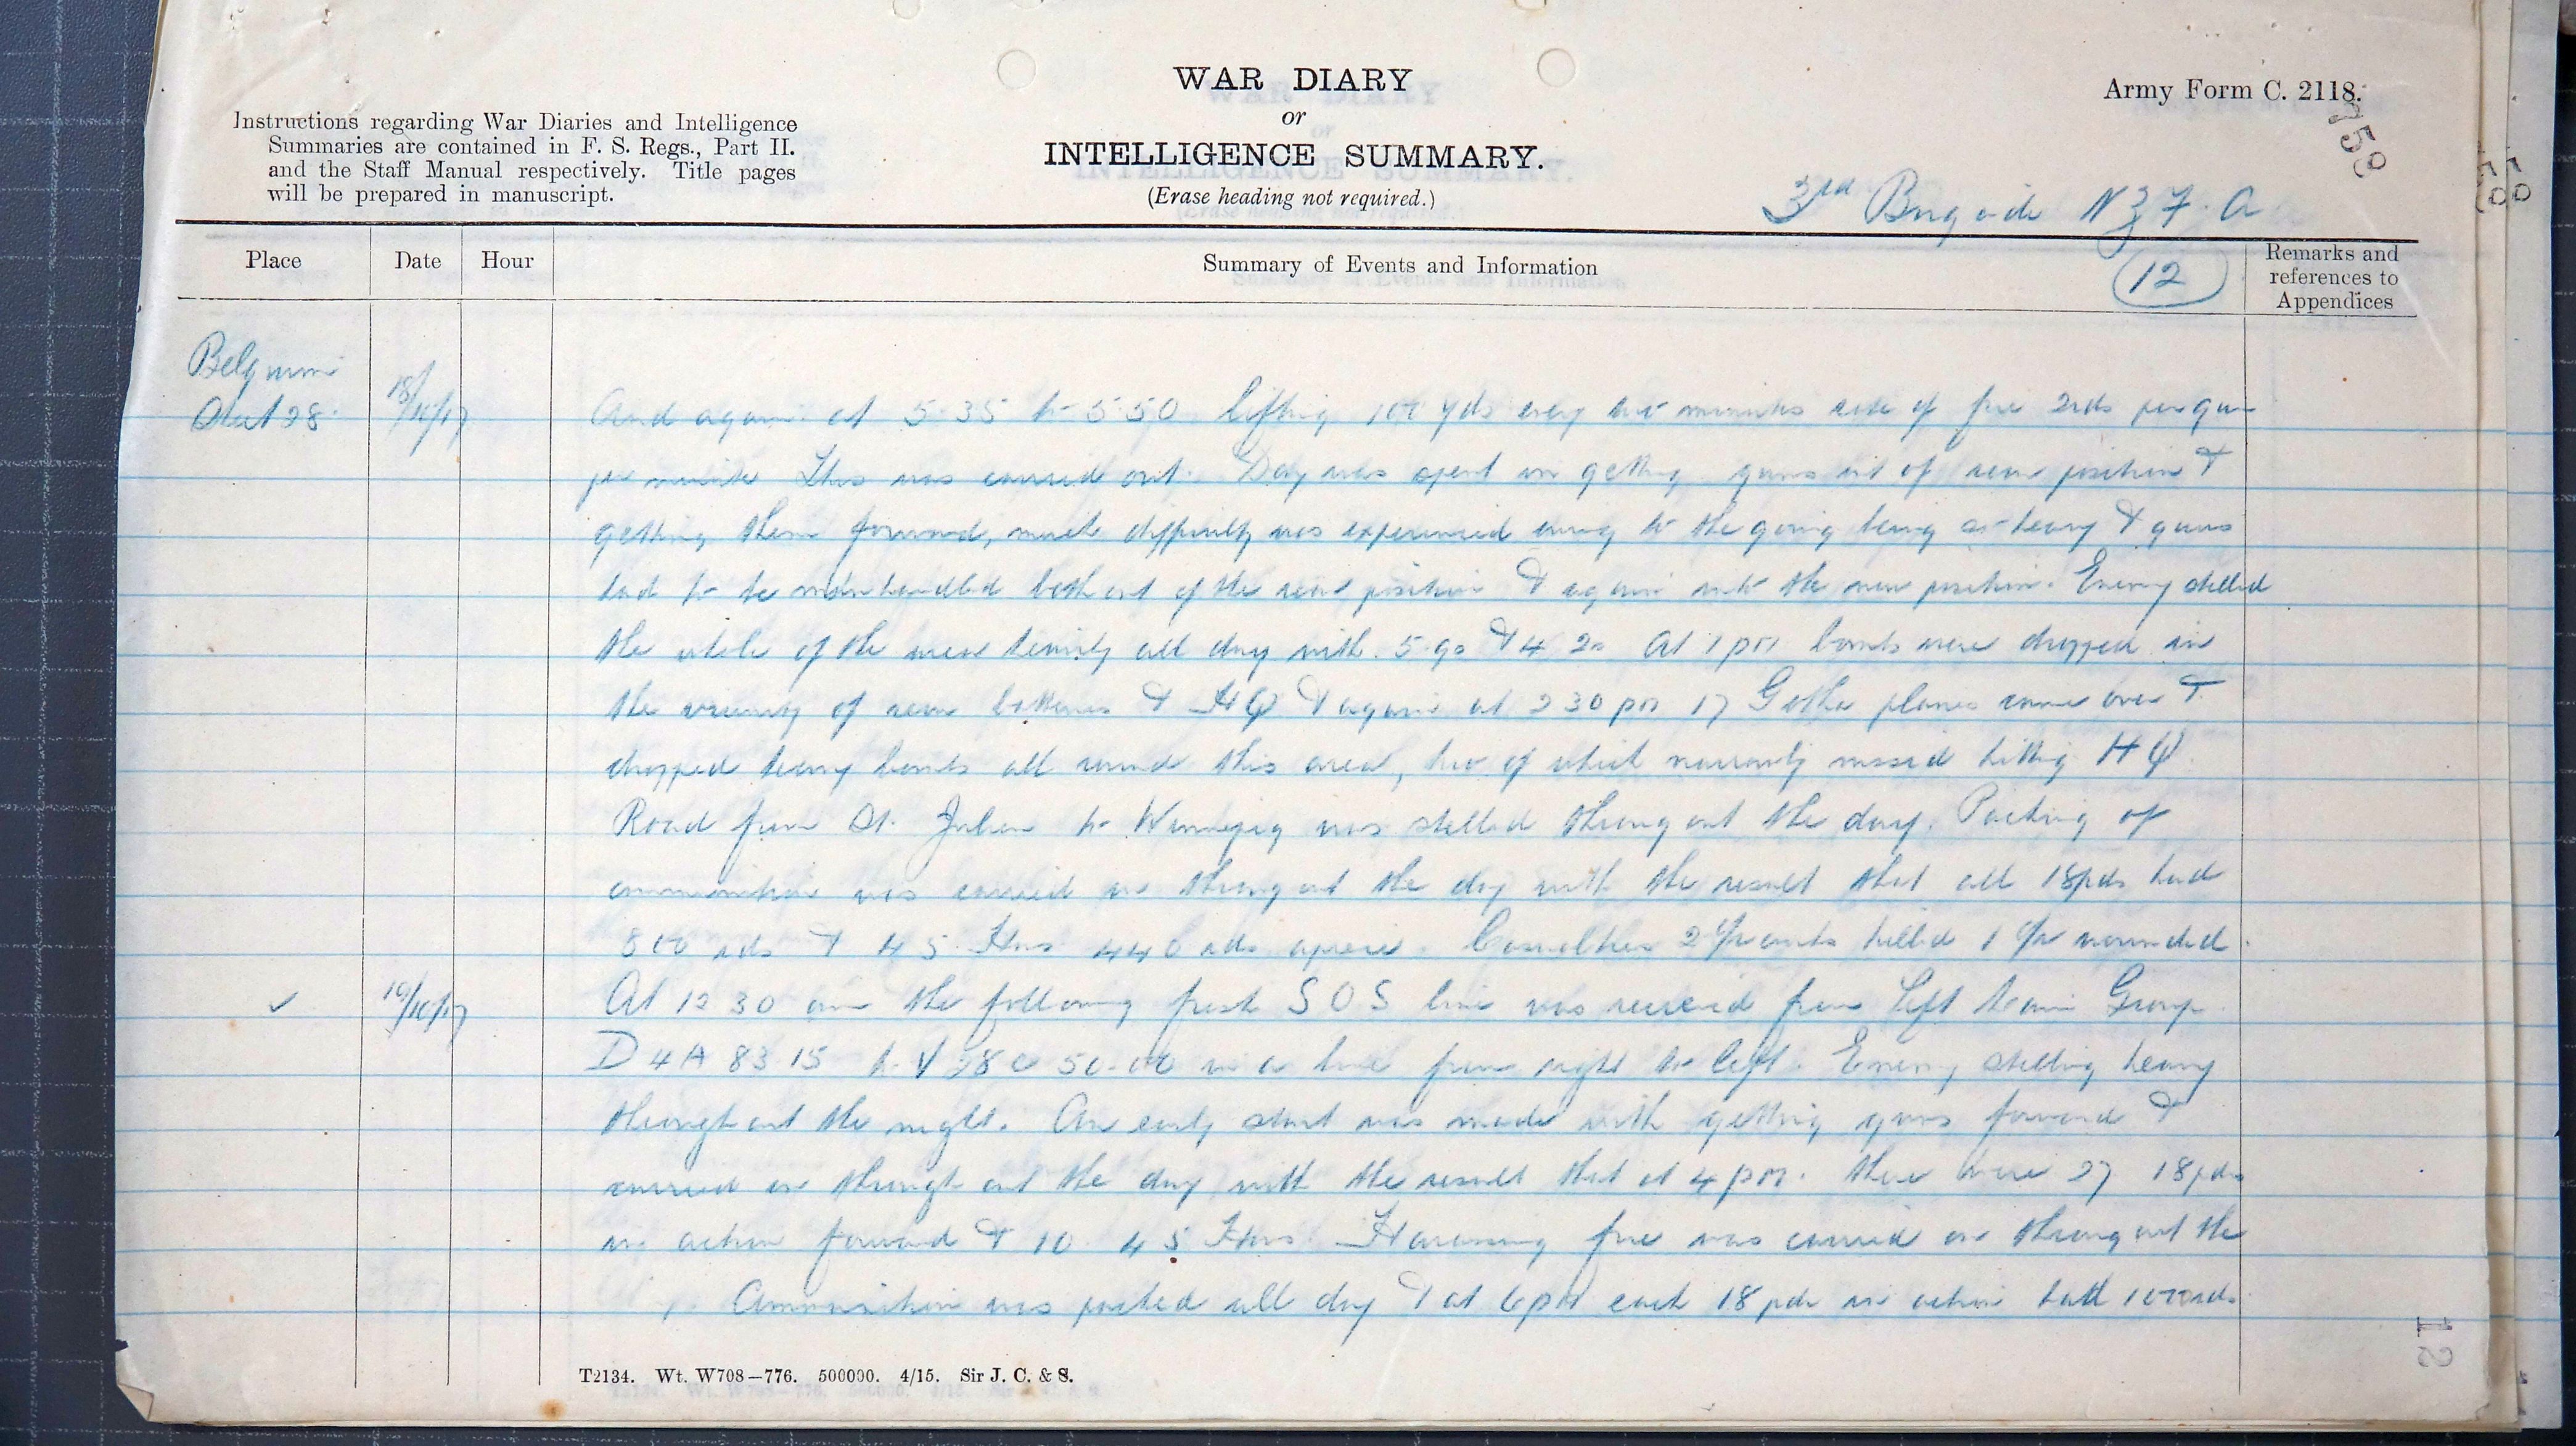 WAR DIARY
or
INTELLIGENCE SUMMARY.
(Erase heading not required.)
Army Form C. 2118.
759
Instructions regarding War Diaries and Intelligence
Summaries are contained in F. S. Regs., Part II.
and the Staff Manual respectively. Title pages
will be prepared in manuscript.
3rd Brigade NZFA
Place
Date
Hour
Summary of Events and Information
12
Remarks and
references to
Appendices
Belgium
28
18/10/17
And again at 5.35 to 5.50 lifting 100 yds every two minutes rate of fire 2rds per gun
per minute This was carried out. Day was spent in getting guns out of rear position &
getting them forward, much difficulty was experienced owing to the going being so heavy & guns
had to be manhandled both out of the rear position & again into the new position. Enemy shelled
the whole of the area all day with 5.9s & 4.2s At 1 pm bombs were dropped in
the vicinity of rear batteries & HQ & again at 2 30 pm 17 Gotha planes came over &
dropped heavy bombs all round this area, two of which narrowly missed hitting HQ.
Road from St. Julien to Winnipeg was shelled throughout the day. Packing of
ammunition was carried on throughout the day with the result that all 18pdrs had
800 rds & 4 5 Hows 440 rds apiece. Casualties 2 killed 1 wounded.
19/10/17
At 12 30 am the following fresh SOS line was received from Left Group
D 4 A 83.15 to V 28 C 50.00 in a line from right to left. Enemy shelling heavy
throughout the night. An early start was made with getting guns forward &
carried on throughout the day with the result that at 4 pm. there were 27 18pdrs
in action forward & 10 4 5 Hows. Harassing fire was carried on throughout the
Ammunition was packed all day & at 6 pm each 18 pdr in action had 100 rds
T2134. Wt. W708—776. 500000. 4/15. Sir J. C. & S.
12